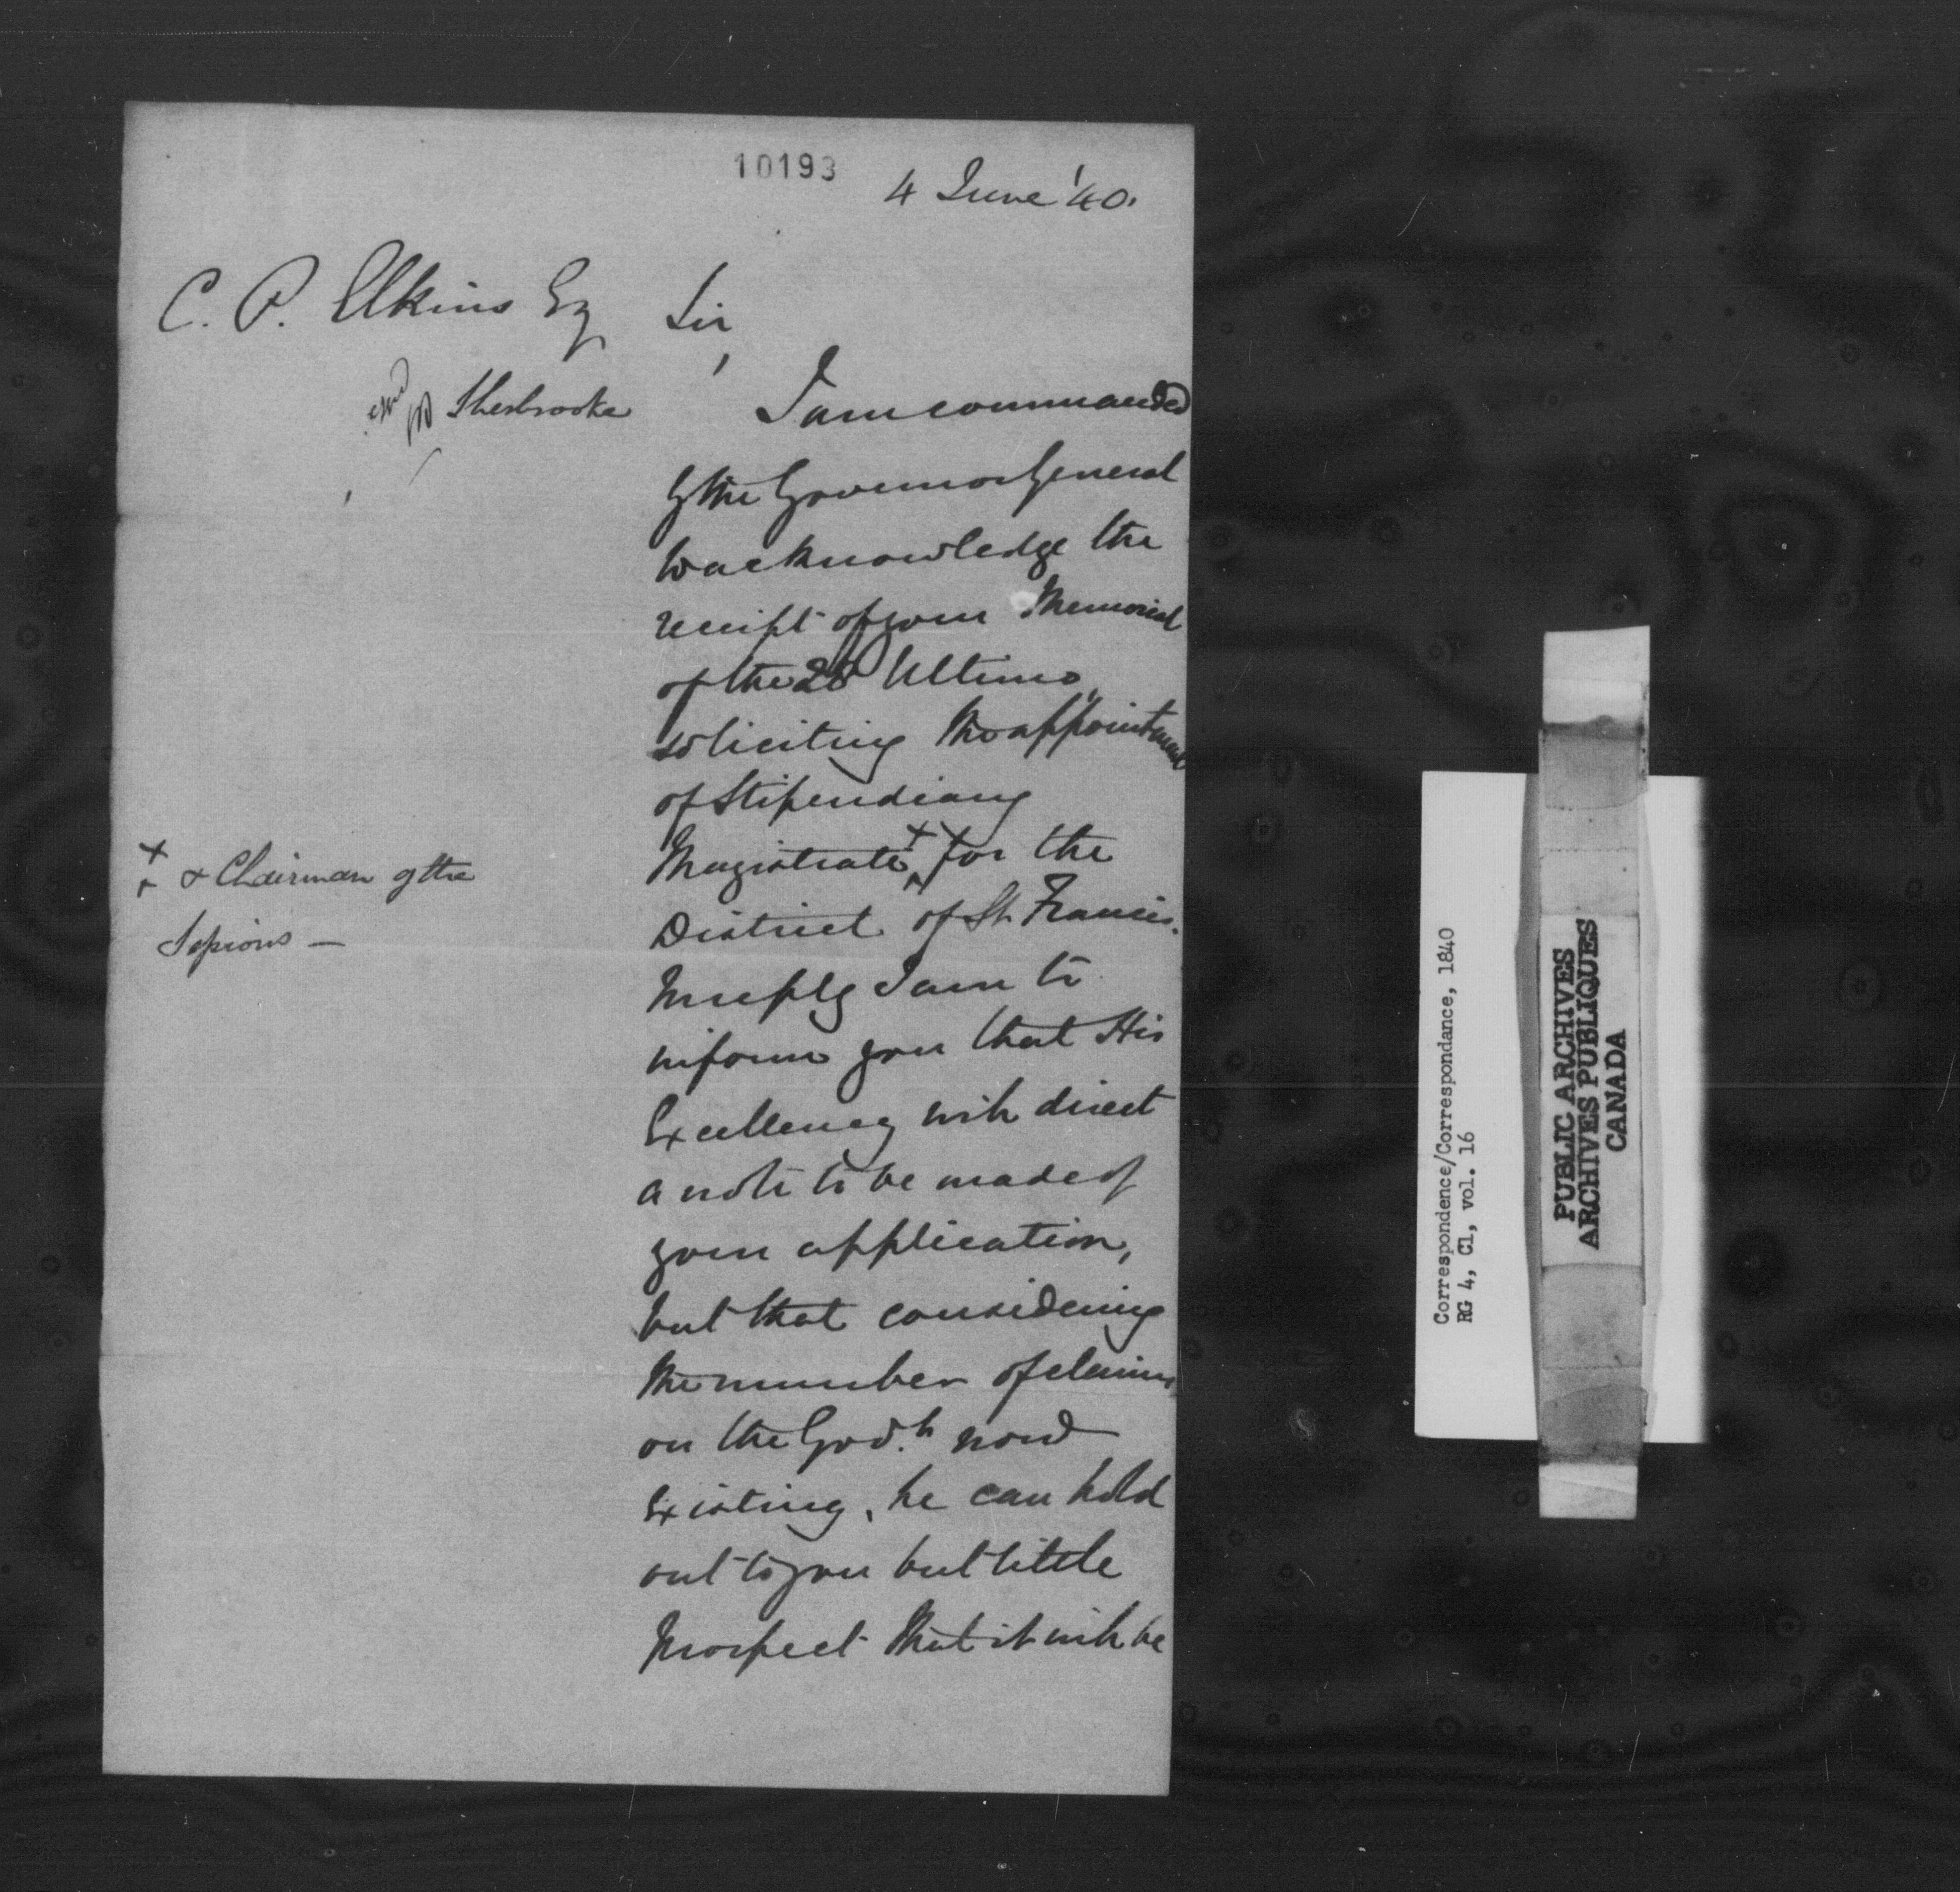 10193
4 June '40.
C. P. Elkins Esq
Sherbrooke
Sir,
I am commanded
by the Governor General
to acknowledge the
receipt of your Memorial
of the 28 Ultimo,
soliciting the appointment
of Stipendiary
Magistrate + for the
+ & Chairman of the
Sessions —
District of St. Francis.
In reply I am to
inform you that His
Excellency will direct
a note to be made of
your application,
but that considering
the number of claims
on the Govt. now
existing, he can hold
out to you but little
prospect that it will be
Correspondence/Correspondance, 1840
RG 4, C1, vol. 16
PUBLIC ARCHIVES
ARCHIVES PUBLIQUES
CANADA